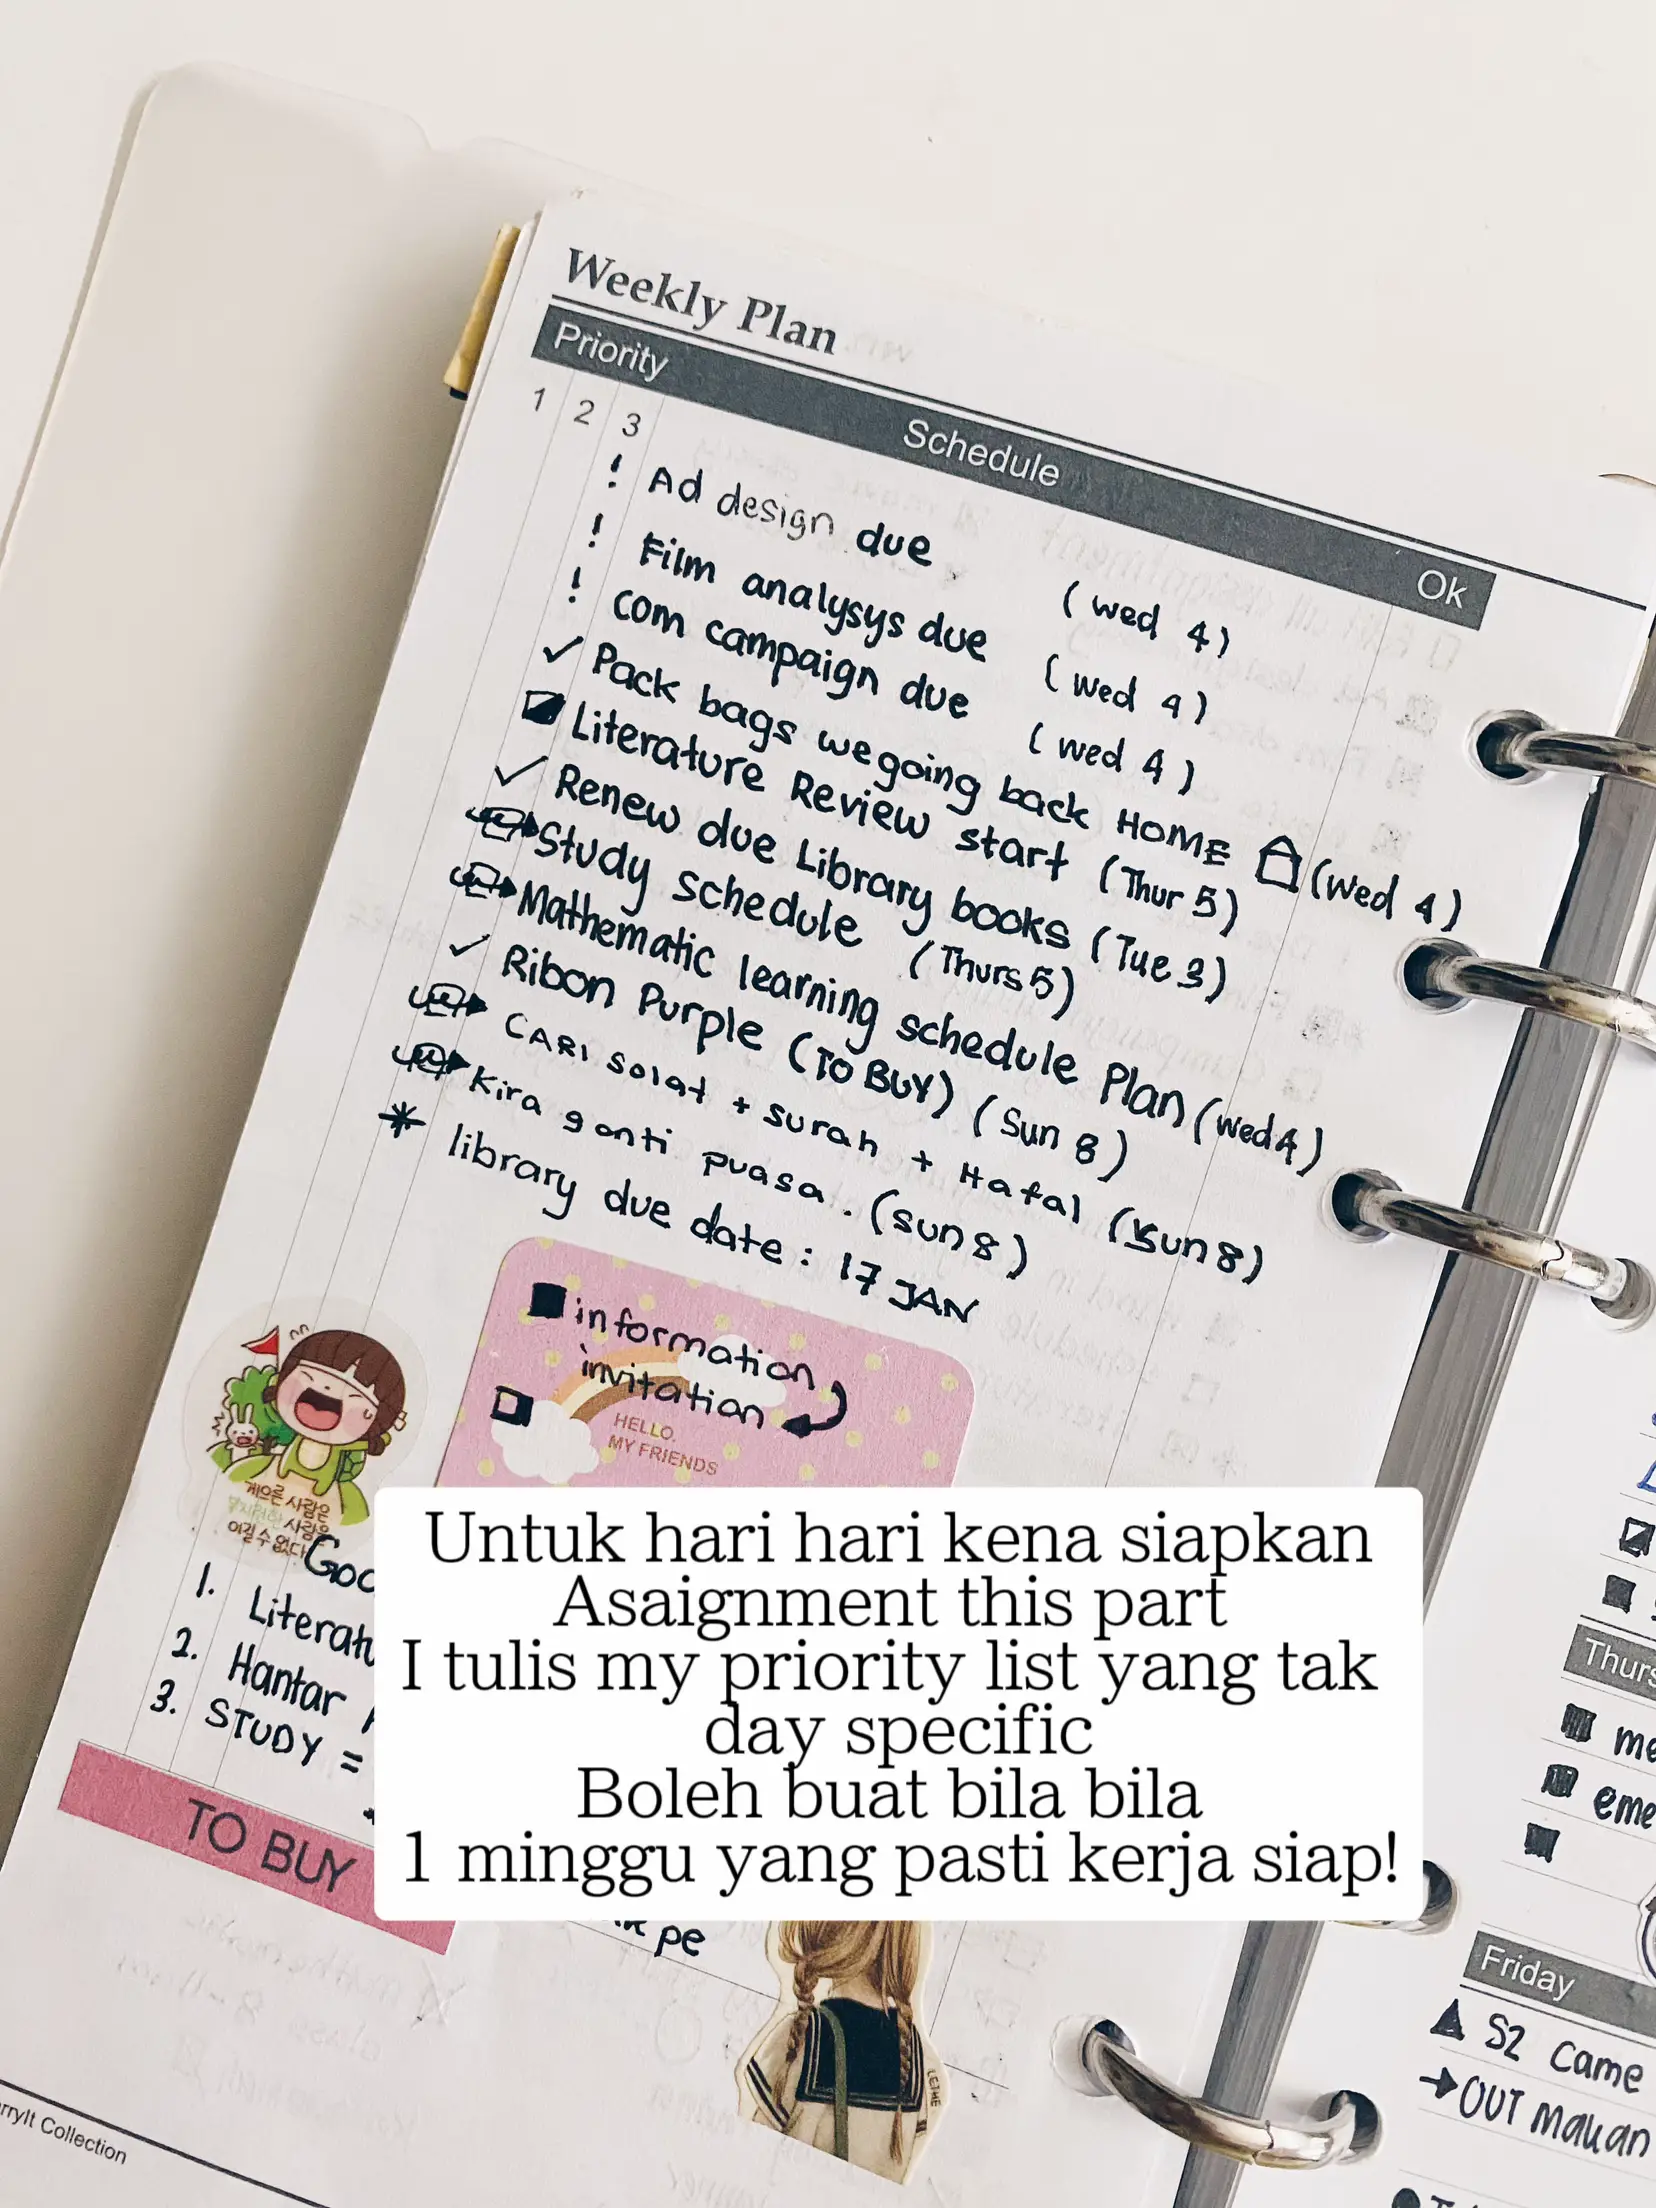 Weekly Plan
Priority Schedule Ok
1 2 3
! Ad design due (wed 4)
! Film analysys due (wed 4)
! com campaign due (wed 4)
✓ Pack bags we going back HOME (wed 4)
Literature Review start (Thur 5)
✓ Renew due Library books (Tue 3)
Study schedule (Thurs 5)
Mathematic learning schedule Plan (wed 4)
✓ Ribon Purple (TO BUY) (Sun 8)
CARI solat + surah + Hafal (sun 8)
Kira ganti puasa. (sun 8)
* library due date : 17 JAN
information
invitation
HELLO,
MY FRIENDS
게으른 사람은
사람을
이길 수 없다
1. Literatu
2. Hantar
3. STUDY =
TO BUY
Untuk hari hari kena siapkan
Asaignment this part
I tulis my priority list yang tak
day specific
Boleh buat bila bila
1 minggu yang pasti kerja siap!
pe
LETHE
rryIt Collection
Thurs
me
eme
Friday
▲ S2 came
→ OUT makan